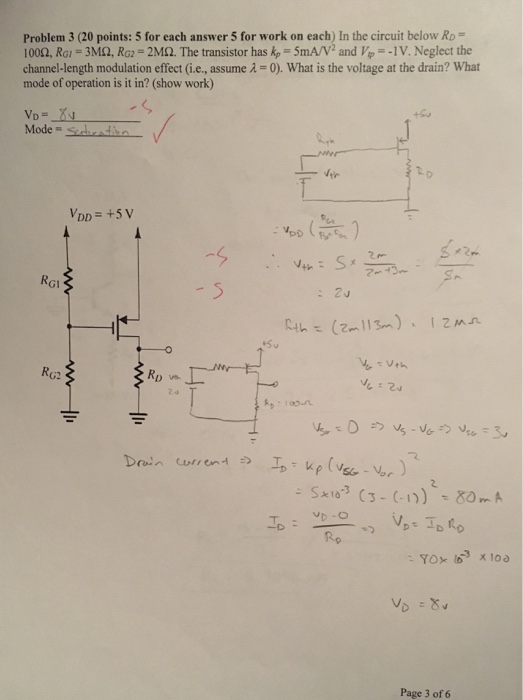 Problem 3 (20 points: 5 for each answer 5 for work on each) In the circuit below R_D =
100Ω, R_G1 = 3MΩ, R_G2 = 2MΩ. The transistor has k_p = 5mA/V² and V_tp = -1V. Neglect the
channel-length modulation effect (i.e., assume λ = 0). What is the voltage at the drain? What
mode of operation is it in? (show work)
V_D = 8V
-5
Mode = Saturation ✓
+5V
R_th
V_th
R_D
V_DD = +5 V
= V_DD
-5
∴ V_th = 5 × 2m / 2m+3m = 5×2m / 5m
-5
R_G1
= 2V
R_th = (2m||3m) = 1.2MΩ
+5V
V_G = V_th
R_G2
R_D
V_G = 2V
R_D = 100Ω
= 0 => V_S - V_G => V_SG = 3V
Drain current => I_D = K_P (V_SG - )²
= 5×10^-3 (3-(-1))² = 80mA
I_D = V_D-0 / R_D => V_D = I_D R_D
= 80×10^-3 × 100
V_D = 8V
Page 3 of 6